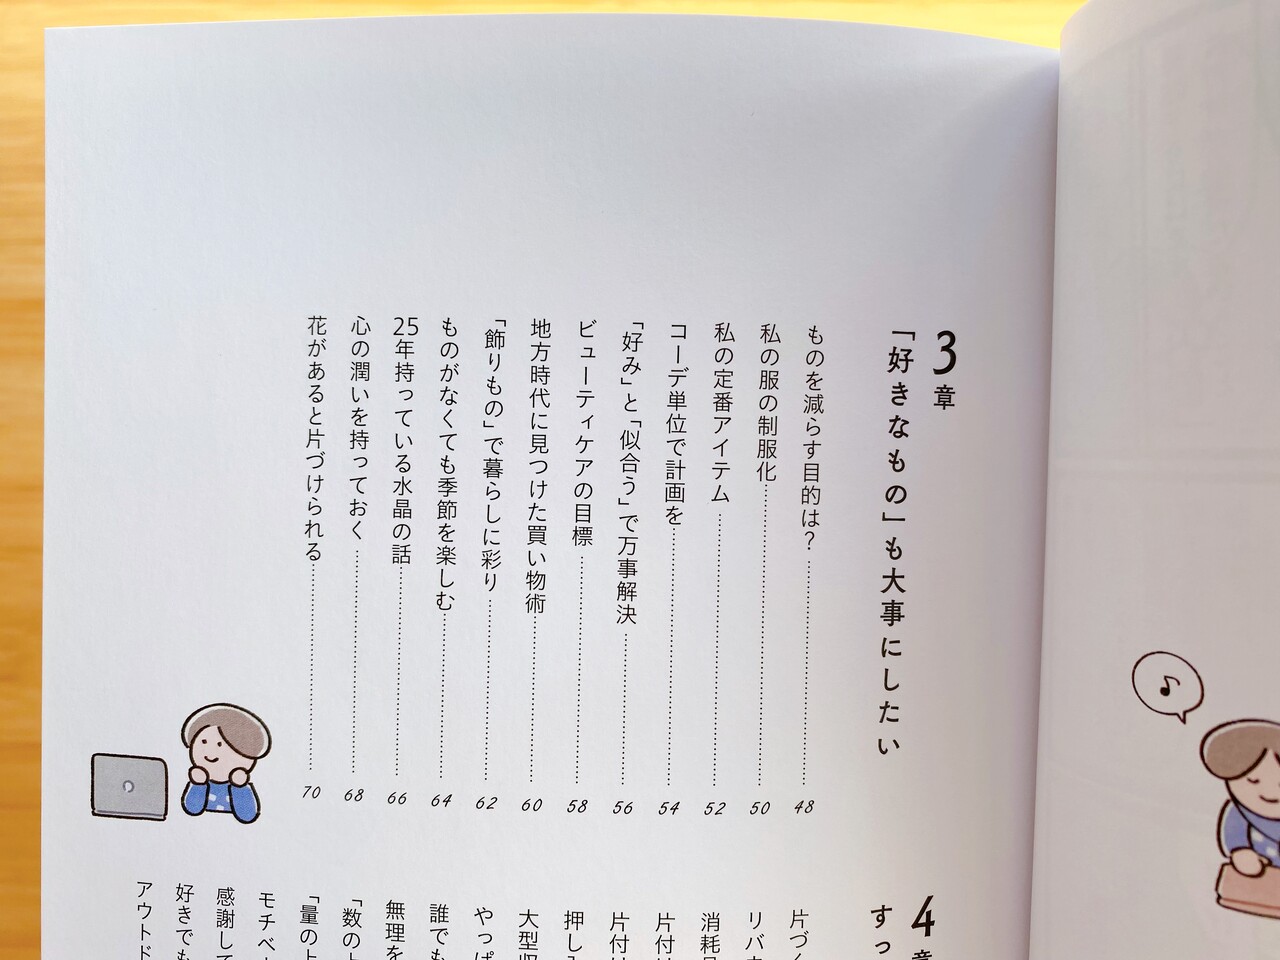 3章
「好きなもの」も大事にしたい
ものを減らす目的は？ 48
私の服の制服化 50
私の定番アイテム 52
コーデ単位で計画を 54
「好み」と「似合う」で万事解決 56
ビューティケアの目標 58
地方時代に見つけた買い物術 60
「飾りもの」で暮らしに彩り 62
ものがなくても季節を楽しむ 64
25年持っている水晶の話 66
心の潤いを持っておく 68
花があると片づけられる 70
4章
すっ
片づく
リバウ
消耗品
片付け
片付け
押し入
大型収
やっぱ
誰でも
無理を
「数の上
「量の上
モチベー
感謝して
好きでも
アウトド